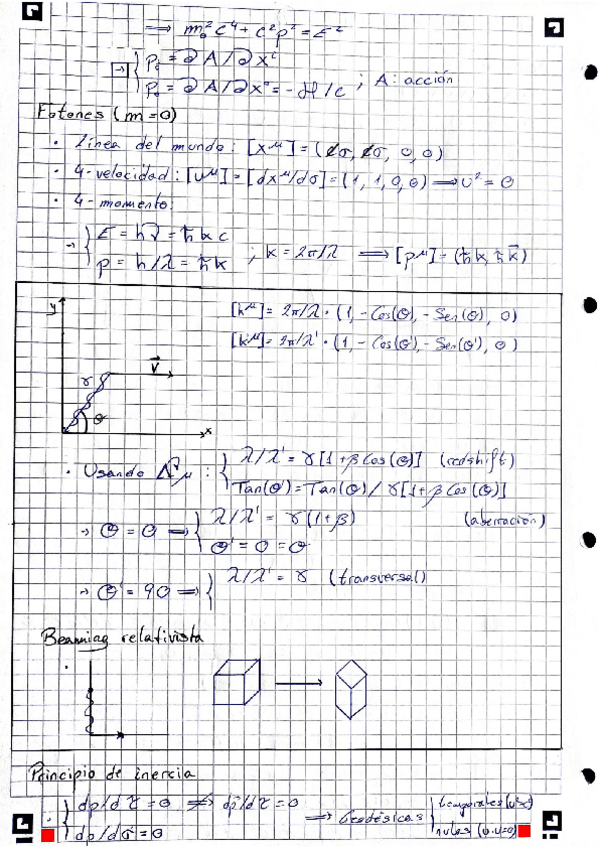 ⟹ m₀²c⁴ + c²p² = E²
→ { Pᵢ = ∂A/∂xⁱ
P₀ = ∂A/∂x⁰ = -H/c ; A: acción
Fotones (m=0)
· Línea del mundo: [x^μ] = (σ, σ, 0, 0)
· 4-velocidad: [U^μ] = [dx^μ/dσ] = (1, 1, 0, 0) ⟹ U² = 0
· 4-momento:
→ { E = hν = ħkc
p = h/λ = ħk ; k = 2π/λ ⟹ [p^μ] = (ħk, ħk⃗)
[k^μ] = 2π/λ · (1, -Cos(θ), -Sen(θ), 0)
[k'^μ] = 2π/λ' · (1, -Cos(θ'), -Sen(θ'), 0)
y
γ
V⃗
θ
x
· Usando Λ^ν_μ : { λ/λ' = γ[1+βCos(θ)] (redshift)
Tan(θ') = Tan(θ)/γ[1+βCos(θ)]
(aberración)
→ θ = 0 ⟹ { λ/λ' = γ(1+β)
θ' = 0 = θ
→ θ' = 90 ⟹ { λ/λ' = γ (transversal)
Beaming relativista
Principio de inercia
· { dp/dτ = 0 ⇏ dp⃗/dτ = 0
dp/dσ = 0
⟹ Geodésicas { temporales
nulas (u·u=0)